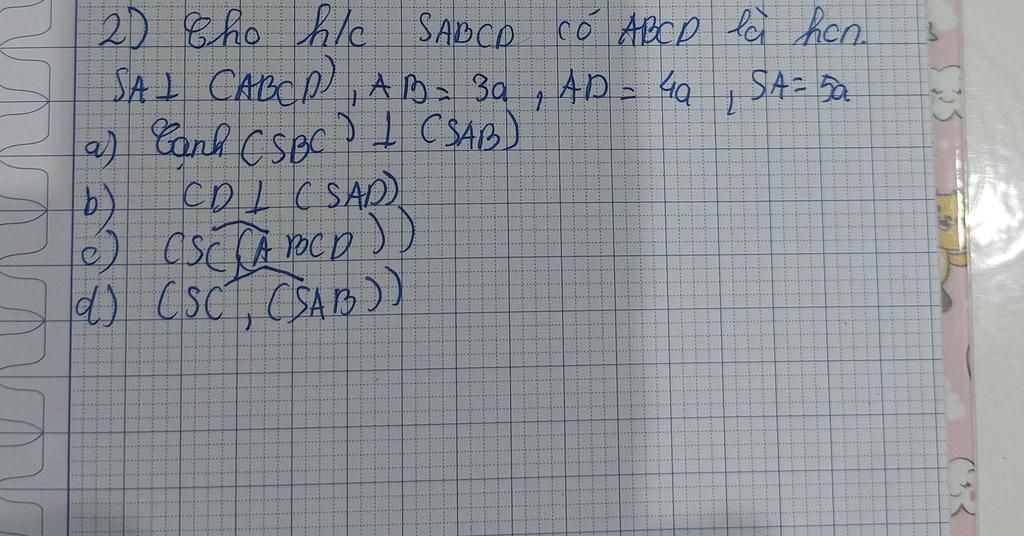 2) Cho h/c SABCD có ABCD là hcn.
SA ⊥ (ABCD), AB = 3a, AD = 4a, SA = 5a
a) (SBC) ⊥ (SAB)
b) CD ⊥ (SAD)
c) (SC, (ABCD))
d) (SC, (SAB))